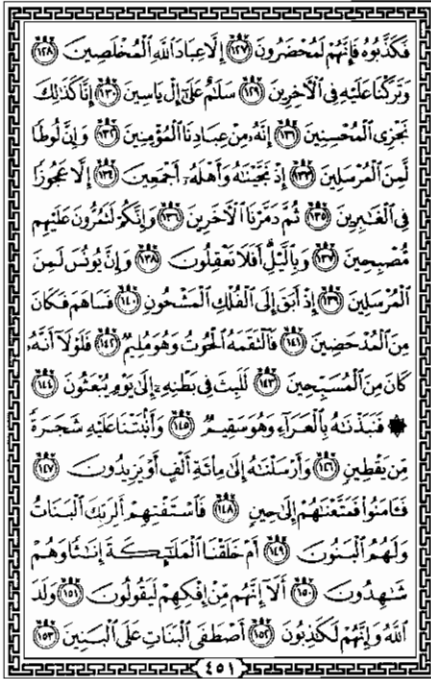 فَكَذَّبُوهُ فَإِنَّهُمْ لَمُحْضَرُونَ ﴿١٢٧﴾ إِلَّا عِبَادَ ٱللَّهِ ٱلْمُخْلَصِينَ ﴿١٢٨﴾
وَتَرَكْنَا عَلَيْهِ فِى ٱلْـَٔاخِرِينَ ﴿١٢٩﴾ سَلَـٰمٌ عَلَىٰٓ إِلْ يَاسِينَ ﴿١٣٠﴾ إِنَّا كَذَٰلِكَ
نَجْزِى ٱلْمُحْسِنِينَ ﴿١٣١﴾ إِنَّهُۥ مِنْ عِبَادِنَا ٱلْمُؤْمِنِينَ ﴿١٣٢﴾ وَإِنَّ لُوطًا
لَّمِنَ ٱلْمُرْسَلِينَ ﴿١٣٣﴾ إِذْ نَجَّيْنَـٰهُ وَأَهْلَهُۥٓ أَجْمَعِينَ ﴿١٣٤﴾ إِلَّا عَجُوزًا
فِى ٱلْغَـٰبِرِينَ ﴿١٣٥﴾ ثُمَّ دَمَّرْنَا ٱلْـَٔاخَرِينَ ﴿١٣٦﴾ وَإِنَّكُمْ لَتَمُرُّونَ عَلَيْهِم
مُّصْبِحِينَ ﴿١٣٧﴾ وَبِٱلَّيْلِ ۗ أَفَلَا تَعْقِلُونَ ﴿١٣٨﴾ وَإِنَّ يُونُسَ لَمِنَ
ٱلْمُرْسَلِينَ ﴿١٣٩﴾ إِذْ أَبَقَ إِلَى ٱلْفُلْكِ ٱلْمَشْحُونِ ﴿١٤٠﴾ فَسَاهَمَ فَكَانَ
مِنَ ٱلْمُدْحَضِينَ ﴿١٤١﴾ فَٱلْتَقَمَهُ ٱلْحُوتُ وَهُوَ مُلِيمٌ ﴿١٤٢﴾ فَلَوْلَآ أَنَّهُۥ
كَانَ مِنَ ٱلْمُسَبِّحِينَ ﴿١٤٣﴾ لَلَبِثَ فِى بَطْنِهِۦٓ إِلَىٰ يَوْمِ يُبْعَثُونَ ﴿١٤٤﴾
۞ فَنَبَذْنَـٰهُ بِٱلْعَرَآءِ وَهُوَ سَقِيمٌ ﴿١٤٥﴾ وَأَنۢبَتْنَا عَلَيْهِ شَجَرَةً
مِّن يَقْطِينٍ ﴿١٤٦﴾ وَأَرْسَلْنَـٰهُ إِلَىٰ مِا۟ئَةِ أَلْفٍ أَوْ يَزِيدُونَ ﴿١٤٧﴾
فَـَٔامَنُوا۟ فَمَتَّعْنَـٰهُمْ إِلَىٰ حِينٍ ﴿١٤٨﴾ فَٱسْتَفْتِهِمْ أَلِرَبِّكَ ٱلْبَنَاتُ
وَلَهُمُ ٱلْبَنُونَ ﴿١٤٩﴾ أَمْ خَلَقْنَا ٱلْمَلَـٰٓئِكَةَ إِنَـٰثًا وَهُمْ
شَـٰهِدُونَ ﴿١٥٠﴾ أَلَآ إِنَّهُم مِّنْ إِفْكِهِمْ لَيَقُولُونَ ﴿١٥١﴾ وَلَدَ
ٱللَّهُ وَإِنَّهُمْ لَكَـٰذِبُونَ ﴿١٥٢﴾ أَصْطَفَى ٱلْبَنَاتِ عَلَى ٱلْبَنِينَ ﴿١٥٣﴾
٤٥١